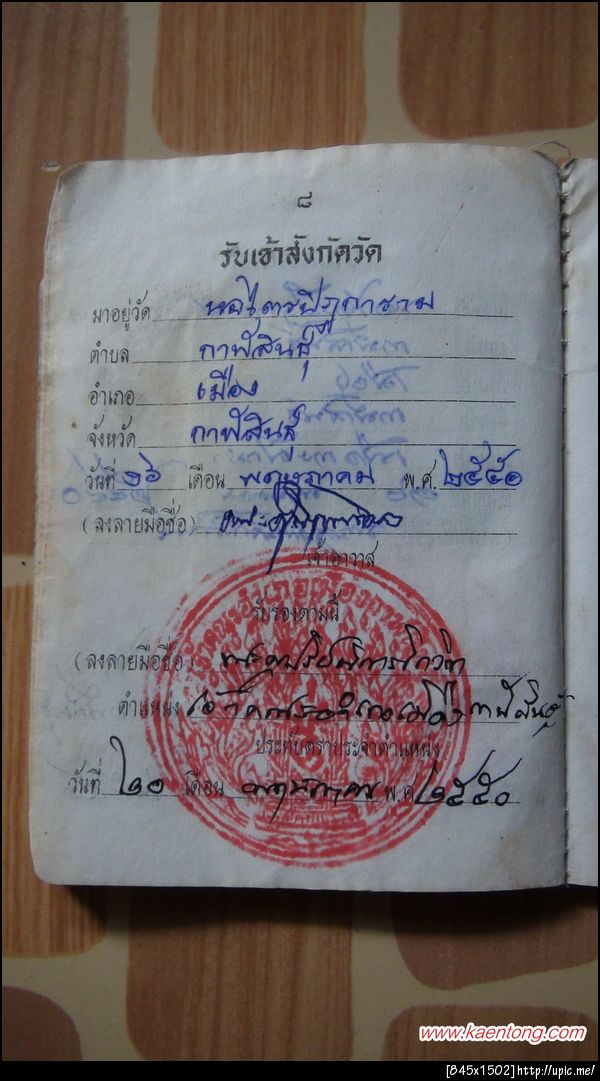 ๘
รับเข้าสังกัดวัด
มาอยู่วัด หอไตรปิฎการาม
ตำบล กาฬสินธุ์
อำเภอ เมือง
จังหวัด กาฬสินธุ์
วันที่ ๑๖ เดือน พฤษภาคม พ.ศ. ๒๕๕๐
(ลงลายมือชื่อ)
เจ้าอาวาส
รับรองตามนี้
(ลงลายมือชื่อ)
ตำแหน่ง เจ้าคณะอำเภอเมืองกาฬสินธุ์
ประทับตราประจำตำแหน่ง
วันที่ ๒๐ เดือน พฤษภาคม พ.ศ. ๒๕๕๐
www.kaentong.com
[845x1502]http://upic.me/